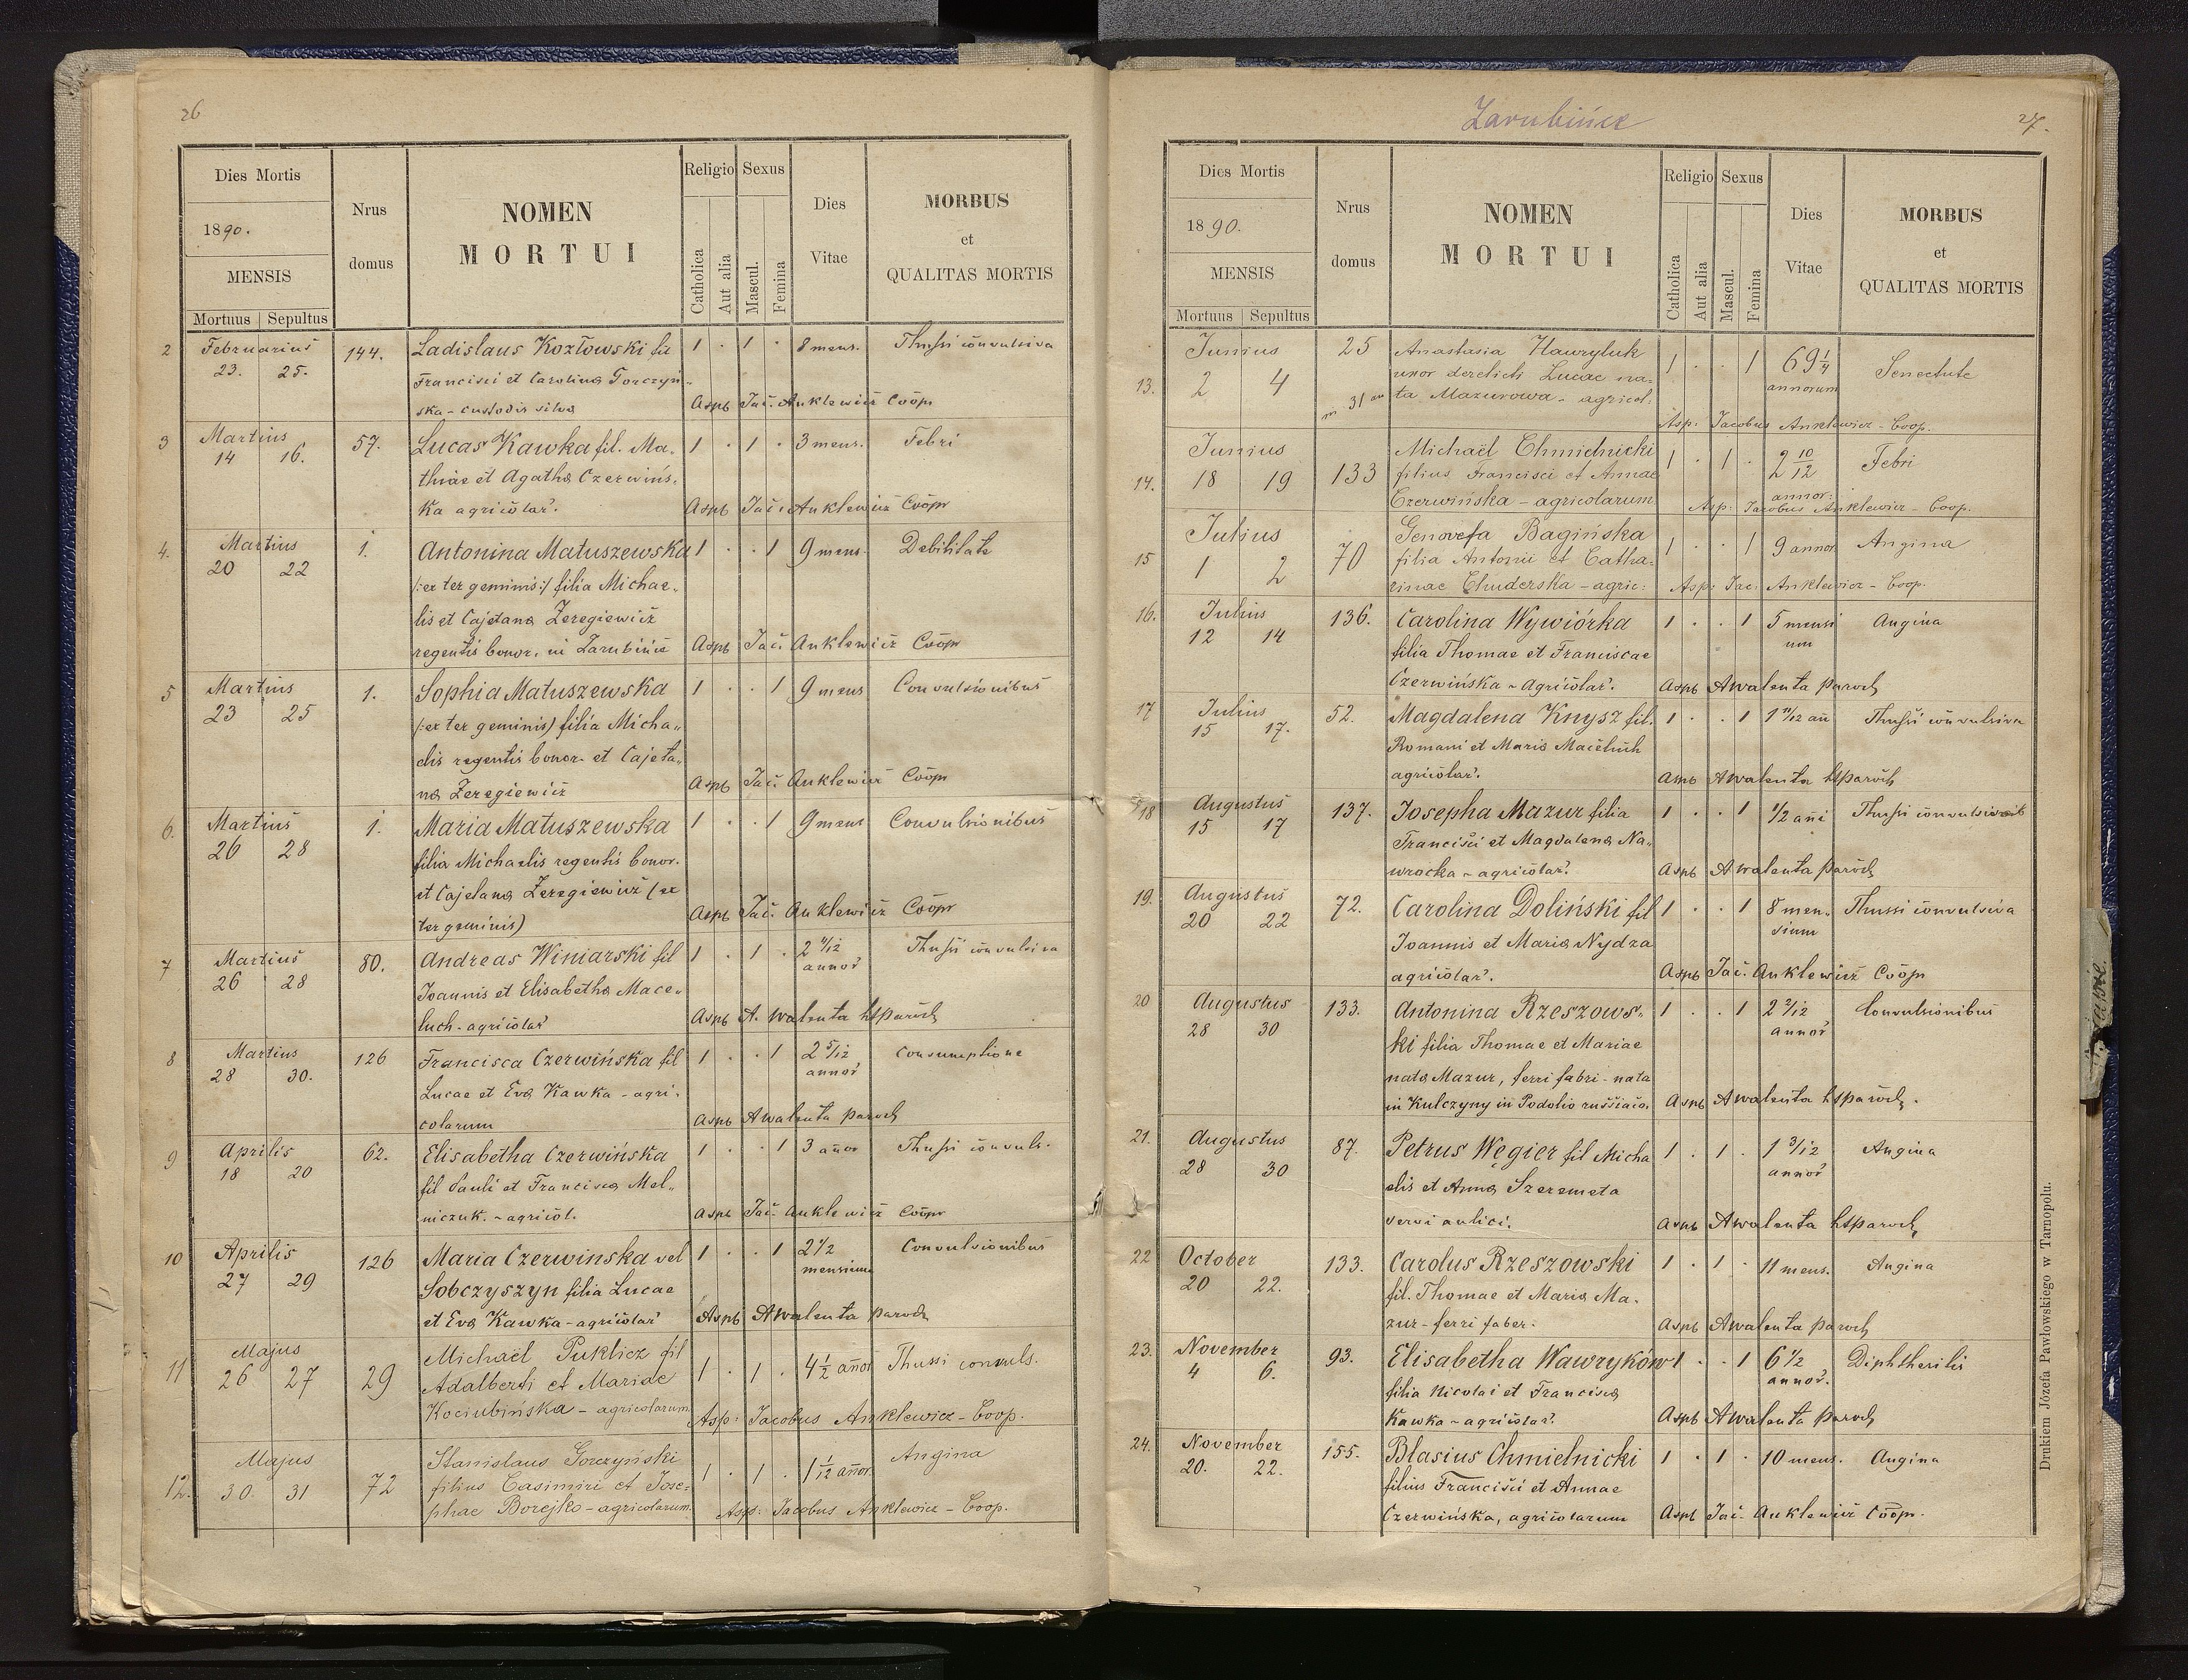 26
Dies Mortis
1890.
MENSIS
Mortuus Sepultus
Nrus
domus
NOMEN
MORTUI
Religio Sexus
Catholica
Aut alia
Mascul.
Femina
Dies
Vitae
MORBUS
et
QUALITAS MORTIS
2 Februarius 144. Ladislaus Kozłowski fil 1 . 1 . 8 mens. Thussi convulsiva
23. 25. Francisci et Carolina Gorczyń„
ska - custodis silva Aspb Jac. Anklewicz Coop
3 Martius 57. Lucas Kawka fil. Ma. 1 . 1 . 3 mens. Febri
14 16. thiae et Agatha Czerwińs.
Ka agricolar. Aspb Jac. Anklewicz Coop
4. Martius 1. Antonina Matuszewska 1 . . 1 9 mens. Debilitate
20 22 (:ex ter geminis:) filia Michae„
lis et Cajetana Zeregiewicz
regentis bonor. in Zarubińce Aspb Jac. Anklewicz Coop
5 Martius 1. Sophia Matuszewska 1 . . 1 9 mens Convulsionibus
23 25 (:ex ter geminis) filia Micha„
elis regentis bonor. et Cajeta„
na Zeregiewicz Aspb Jac. Anklewicz Coop
6. Martius 1. Maria Matuszewska 1 . . 1 9 mens Convulsionibus
26 28 filia Michaelis regentis bonor.
et Cajetana Zeregiewicz (ex
ter geminis) Aspb Jac. Anklewicz Coop
7 Martius 80. Andreas Winiarski fil 1 . 1 . 2 Thussi convulsiva
26 28 Joannis et Elisabetha Mace„ annor
luch - agricolar Aspb A. Walenta paroch
8 Martius 126 Francisca Czerwińska fil 1 . . 1 2 5/12 Consumptione
28 30. Lucae et Eva Kawka - agri. annor
colarum Aspb A Walenta paroch
9 Aprilis 62. Elisabetha Czerwińska 1 . . 1 3 anor Thussi convuls.
18 20 fil Pauli et Francisca Mel„
niczuk. - agricol. Aspb Jac. Anklewicz Coop
10 Aprilis 126 Maria Czerwinska vel 1 . . 1 2 1/2 Convulsionibus
27 29 Sobczyszyn filia Lucae mensium
et Eva Kawka - agricolar Aspb A Walenta paroch
11 Majus 29 Michaël Puklicz fil 1 . 1 . 4 1/2 anor Thussi convuls.
26 27 Adalberti et Mariae
Kociubińska - agricolarum Asp: Jacobus Anklewicz - Coop.
12. Majus 72 Stanislaus Gorczyński 1 . 1 . 1 1/12 anor. Angina
30. 31 filius Casimiri et Jose=
phae Borejko - agricolarum. Asp: Jacobus Anklewicz - Coop.
Zarubińce
27.
Dies Mortis
1890.
MENSIS
Mortuus Sepultus
Nrus
domus
NOMEN
MORTUI
Religio Sexus
Catholica
Aut alia
Mascul.
Femina
Dies
Vitae
MORBUS
et
QUALITAS MORTIS
13. Junius 25 Anastasia Hawryluk 1 . . 1 69 1/4 Senectute
2 4 uxor derelicti Lucae na= annorum
ta Mazurowa - agricol:
Asp: Jacobus Anklewicz - Coop.
14. Junius 133 Michaël Chmielnicki 1 . 1 . 2 10/12 Febri
18 19 filius Francisci et Annae annor:
Czerwińska - agricolarum Asp: Jacobus Anklewicz - Coop.
15 Julius 70 Genovefa Bagińska 1 . . 1 9 annor Angina
1 2 filia Antonii et Catha=
rinae Chuderska - agric: Asp: Jac: Anklewicz - Coop.
16. Julius 136. Carolina Wywiórka 1 . . 1 5 mensi Angina
12 14 filia Thomae et Franciscae um
Czerwińska - Agricolar. Aspb A Walenta paroch
17 Julius 52. Magdalena Knysz fil. 1 . . 1 1 11/12 an Thussi convulsiva
15 17. Romani et Maria Maceluch
agricolar. Aspb A Walenta paroch
18 Augustus 137. Josepha Mazur filia 1 . . 1 1/2 ani Thussi
15 17 Francisci et Magdalena Na„
wrocka - agricolar. Aspb A Walenta paroch
19. Augustus 72. Carolina Doliński fil 1 . . 1 8 men. Thussi convulsiva
20 22 Joannis et Maria Nydza sium
agricolar. Aspb Jac. Anklewicz Coop
20 Augustus 133. Antonina Rzeszows. 1 . . 1 2 2/12 Convulsionibus
28 30 ki filia Thomae et Mariae annor
nata Mazur, ferri fabri - nata
in Kulczyny in Podolio Aspb A Walenta paroch.
21. Augustus 87. Petrus Węgier fil Micha 1 . 1 . 1 3/12 Angina
28 30 elis et Anna Szeremeta annor
servi aulici. Aspb A Walenta paroch
22 October 133. Carolus Rzeszowski 1 . 1 . 11 mens. Angina
20 22. fil. Thomae et Maria Ma.
zur - ferri faber. Aspb A Walenta paroch
23. November 93. Elisabetha Wawryków 1 . . 1 6 1/2 Diphtheritis
4 6. filia Nicolai et Francisca annor.
Kawka - agricolar. Aspb A Walenta paroch
24. November 155. Blasius Chmielnicki 1 . 1 . 10 mens. Angina
20. 22. filius Francisci et Annae
Czerwińska, agricolarum Aspb Jac. Anklewicz Coop.
Drukiem Józefa Pawłowskiego w Tarnopolu.